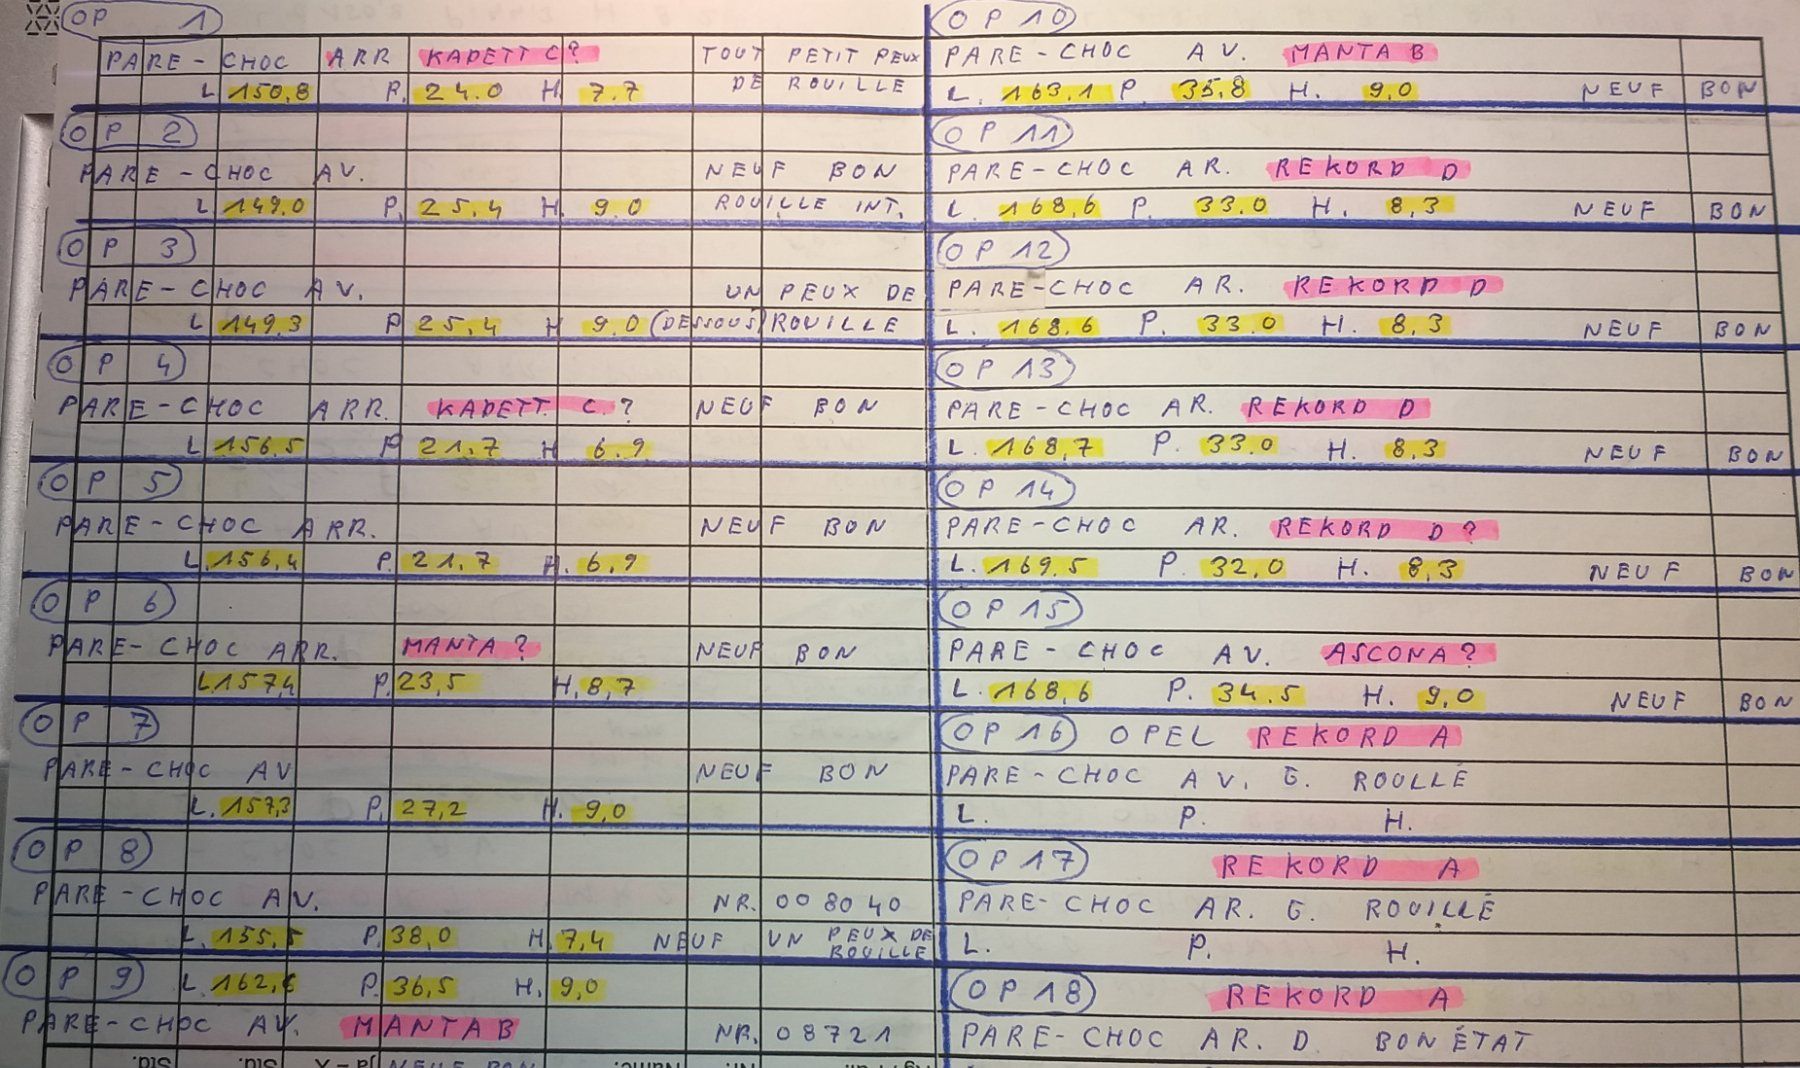 OP 1
PARE-CHOC ARR KADETT C? TOUT PETIT PEUX
L 150,8 P. 24.0 H. 7.7 DE ROUILLE
OP 2
PARE-CHOC AV. NEUF BON
L 149.0 P. 25.4 H. 9.0 ROUILLE INT.
OP 3
PARE-CHOC AV. UN PEUX DE
L 149.3 P 25.4 H 9.0 (DESSOUS) ROUILLE
OP 4
PARE-CHOC ARR. KADETT C.? NEUF BON
L 156,5 P 21.7 H 6.9
OP 5
PARE-CHOC ARR. NEUF BON
L.156,4 P. 21.7 H. 6,9
OP 6
PARE-CHOC ARR. MANTA? NEUF BON
L157,4 P.23,5 H.8,7
OP 7
PARE-CHOC AV NEUF BON
L.157,3 P. 27,2 H. 9,0
OP 8
PARE-CHOC AV. NR. 008040
L.155,5 P.38,0 H.7,4 NEUF UN PEUX DE
ROUILLE
OP 9 L.162,6 P.36,5 H.9,0
PARE-CHOC AV. MANTA B NR. 08721
OP 10
PARE-CHOC AV. MANTA B
L. 163.1 P. 35,8 H. 9,0 NEUF BON
OP 11
PARE-CHOC AR. REKORD D
L. 168,6 P. 33.0 H. 8,3 NEUF BON
OP 12
PARE-CHOC AR. REKORD D
L. 168.6 P. 33.0 H. 8,3 NEUF BON
OP 13
PARE-CHOC AR. REKORD D
L. 168,7 P. 33.0 H. 8,3 NEUF BON
OP 14
PARE-CHOC AR. REKORD D?
L. 169.5 P. 32,0 H. 8,3 NEUF BON
OP 15
PARE-CHOC AV. ASCONA?
L. 168,6 P. 34.5 H. 9,0 NEUF BON
OP 16 OPEL REKORD A
PARE-CHOC AV. G. ROULLÉ
L. P. H.
OP 17 REKORD A
PARE-CHOC AR. G. ROUILLÉ
L. P. H.
OP 18 REKORD A
PARE-CHOC AR. D. BON ÉTAT